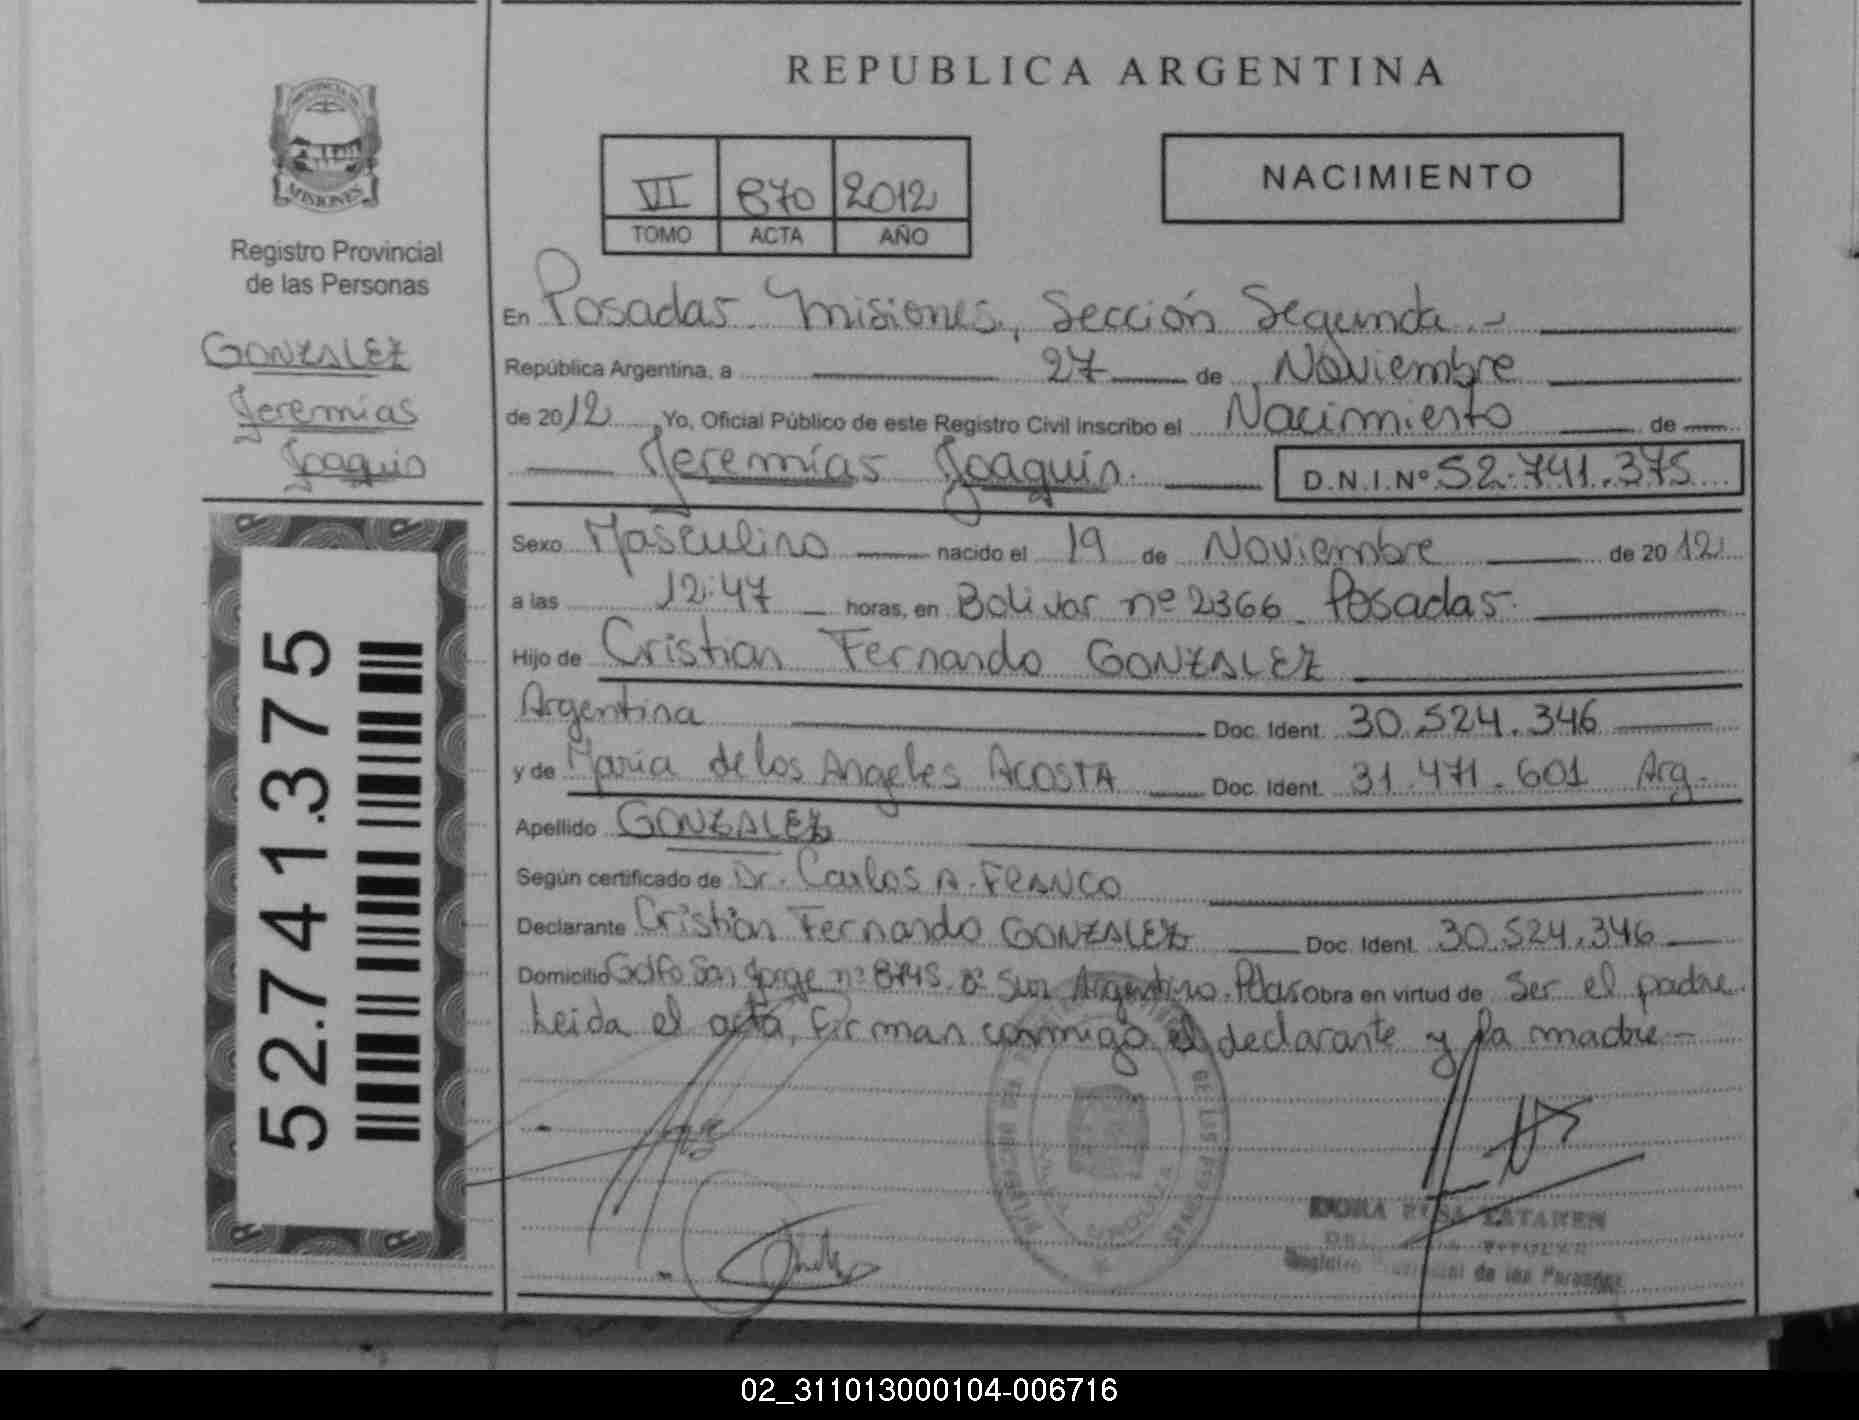 REPUBLICA ARGENTINA
PROVINCIA DE
MISIONES
Registro Provincial
de las Personas
GONZALEZ
Jeremías
Joaquín
52.741.375
VI 870 2012
TOMO ACTA AÑO
NACIMIENTO
En Posadas Misiones, Sección Segunda.-
República Argentina, a 27 de Noviembre
de 2012 Yo, Oficial Público de este Registro Civil inscribo el Nacimiento de
Jeremías Joaquín. D.N.I.Nº 52.741.375
Sexo Masculino nacido el 19 de Noviembre de 2012
a las 12:47 horas, en Bolivar nº 2366 Posadas.
Hijo de Cristian Fernando GONZALEZ
Argentina Doc. Ident. 30.524.346
y de María de los Angeles ACOSTA Doc. Ident. 31.471.601 Arg.
Apellido GONZALEZ
Según certificado de Dr. Carlos A. FRANCO
Declarante Cristian Fernando GONZALEZ Doc. Ident. 30.524.346
Domicilio Golfo San Jorge nº 8745 Bº Sur Argentino. Pdas obra en virtud de Ser el padre
Leida el acta, firman conmigo el declarante y la madre-
DORA
Registro Provincial de las Personas
02_311013000104-006716